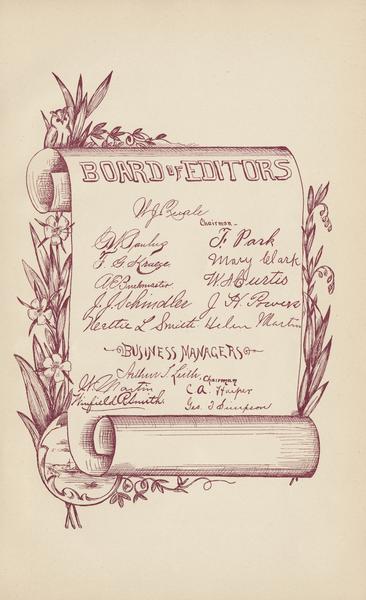 BOARD OF EDITORS
W J
Chairman
F. Park
F. G. Kruege Mary Clark
A E Buckmaster W S Curtis
J. J. Schindler J. H. Powers
Nettie L Smith Helen Martin
BUSINESS MANAGERS
Arthur
Chairman
Martin C. A. Harper
Winfield R Smith Geo. T Simpson